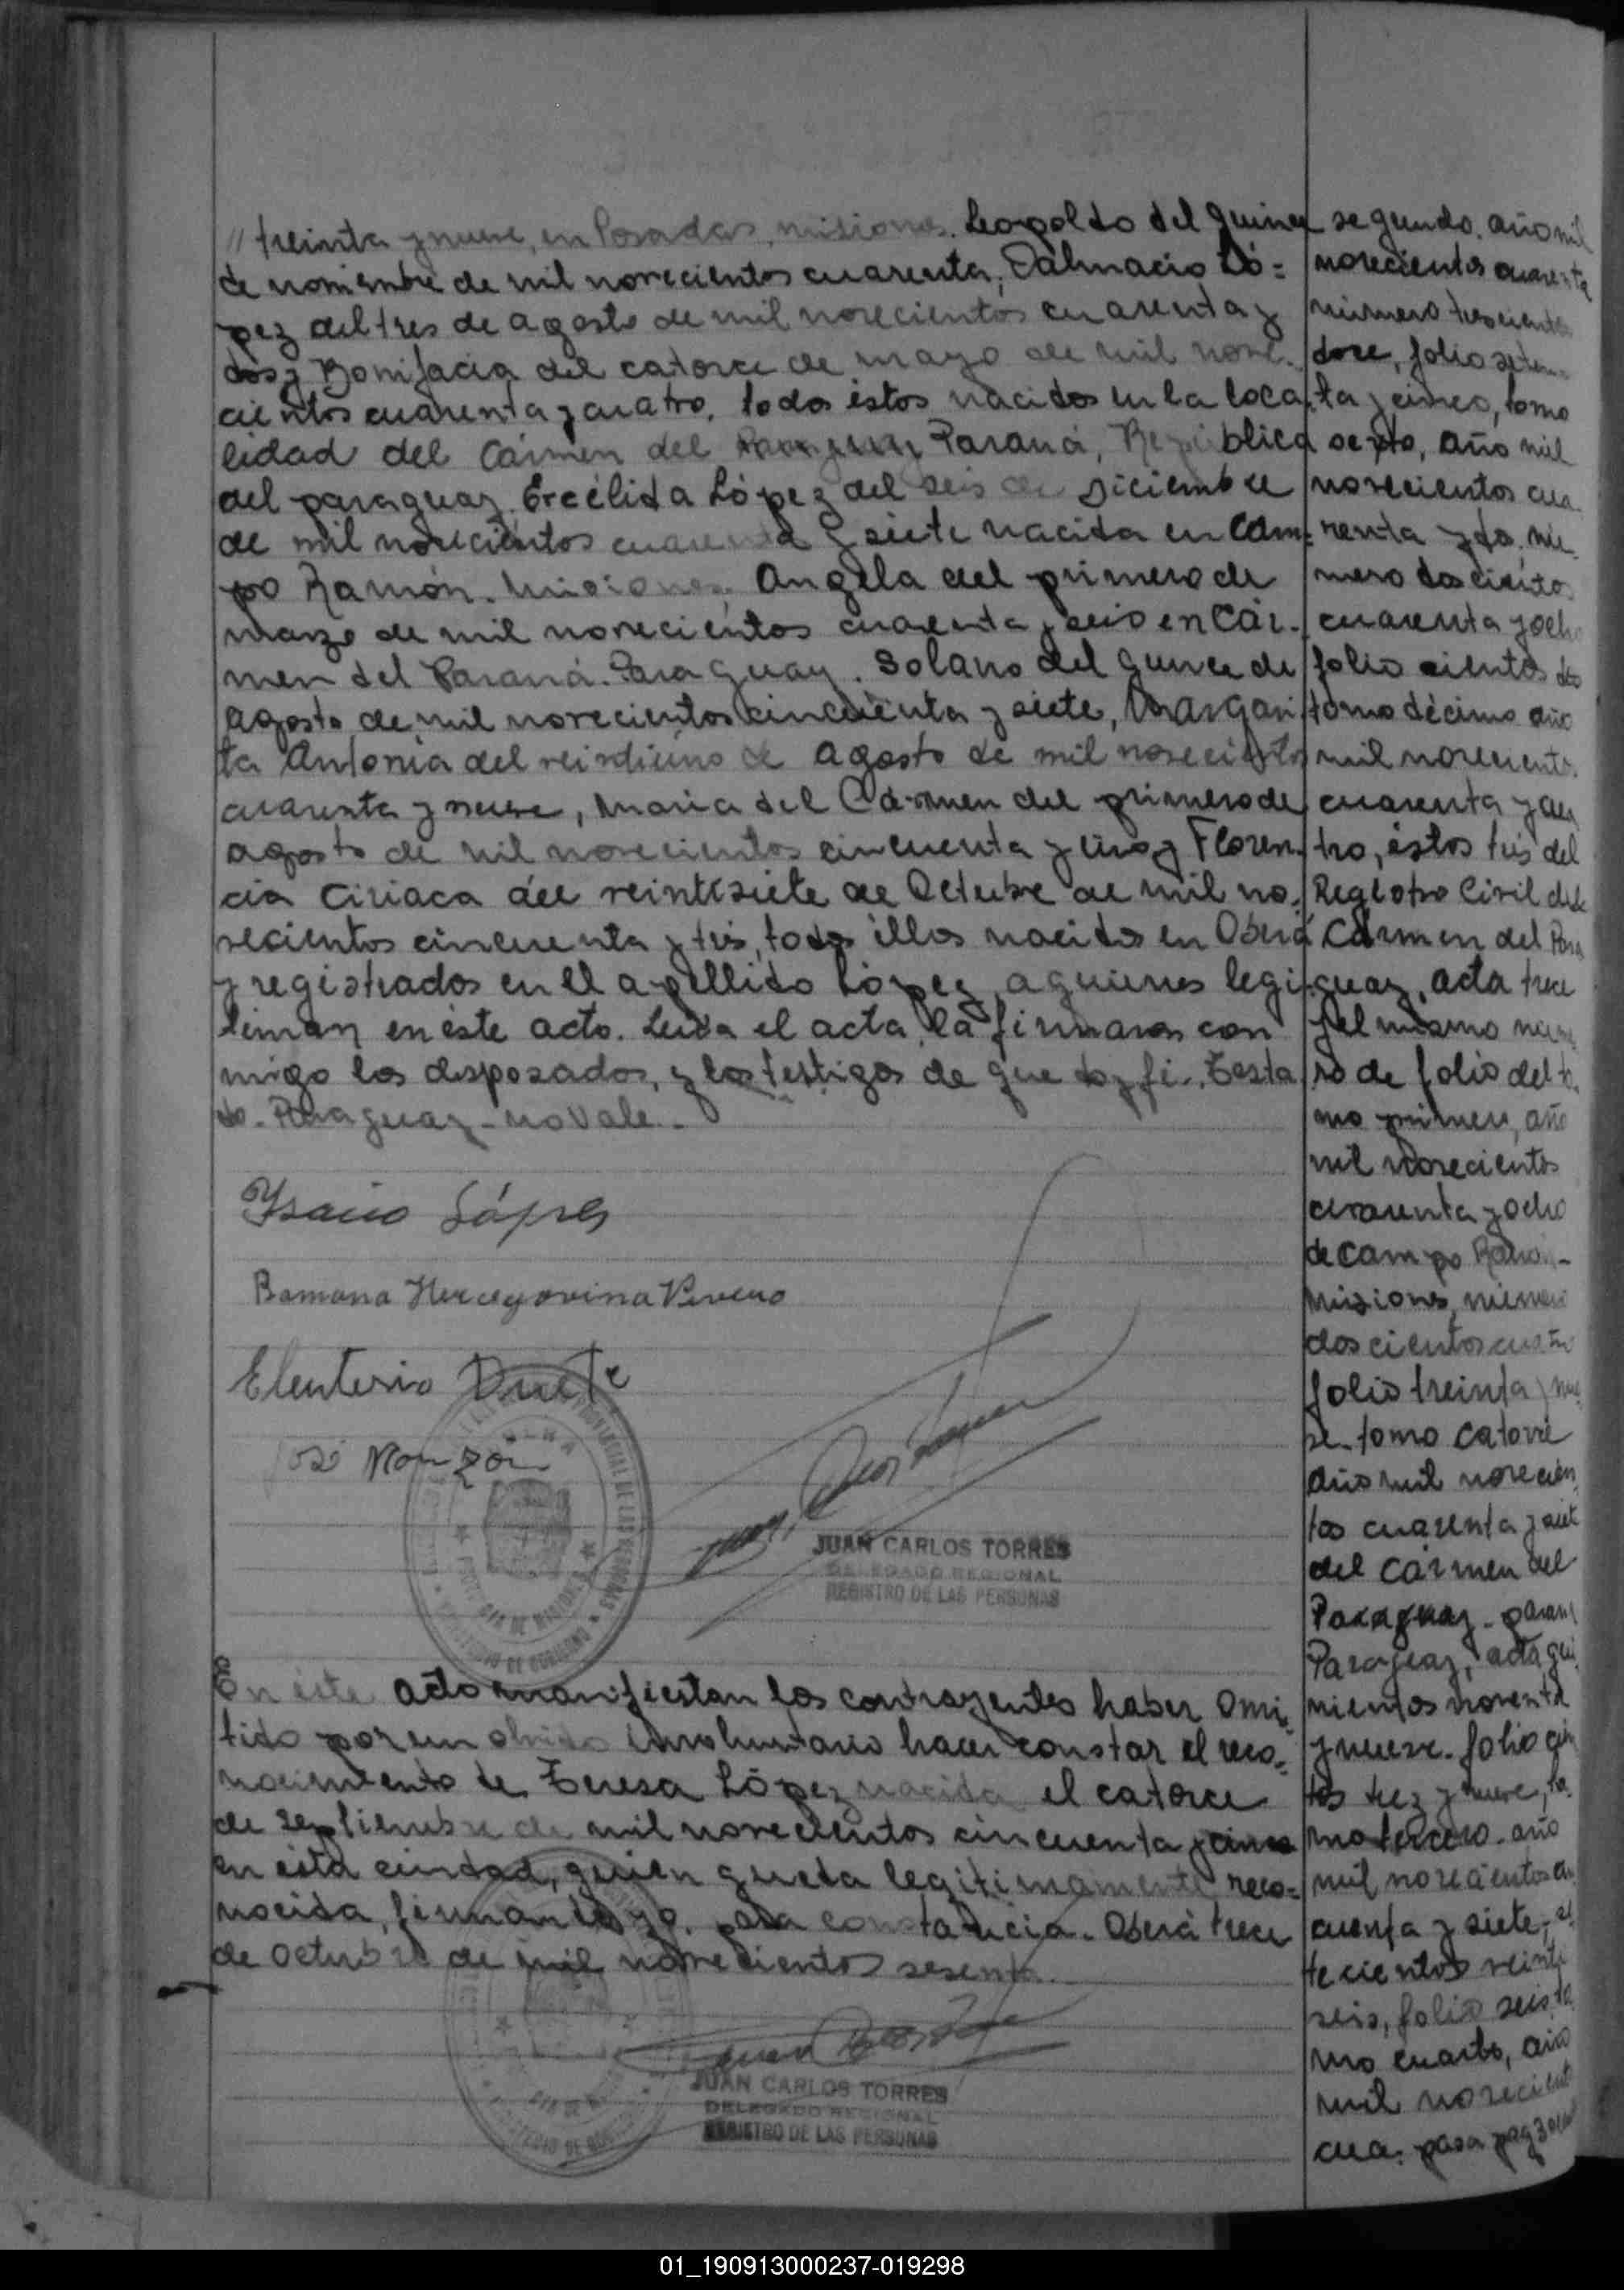 // treinta y nueve, en Posadas, misiones. Leopoldo del quince
de noviembre de mil novecientos cuarenta; Dalmacio Ló=
pez del tres de agosto de mil novecientos cuarenta y
dos y Bonifacia del catorce de mayo de mil nove-
cientos cuarenta y cuatro, todos éstos nacidos en la loca-
lidad del Cármen del Paraguay Paraná, República
del paraguay. Ercélida López del seis de Diciembre
de mil novecientos cuarenta y siete nacida en Cam=
po Ramón. Misiones. Angela del primero de
marzo de mil novecientos cuarenta y seis en Cár-
men del Paraná. Paraguay. Solano del quince de
agosto de mil novecientos cincuenta y siete, Margari
ta Antonia del veintiuno de agosto de mil novecientos
cuarenta y nueve, María del Cármen del primero de
agosto de mil novecientos cincuenta y uno y Floren-
cia Ciriaca del veintisiete de Octubre de mil no-
vecientos cincuenta y tres, todos ellos nacidos en Oberá
y registrados en el apellido López a quienes legi-
timan en éste acto. Leída el acta, la firmaron con
migo los desposados, y los testigos de que doy fé. Testa
do. Paraguay - no vale.-
Ysacio López
Ramona Hercegovina Piveno
Eleuterio Duete
José Monzón
JUAN CARLOS TORRES
DELEGADO REGIONAL
REGISTRO DE LAS PERSONAS
En éste acto manifiestan los contrayentes haber omi-
tido por un olvido involuntario hacer constar el reco=
nocimiento de Teresa López nacida el catorce
de septiembre de mil novecientos cincuenta y cinco
en ésta ciudad, quien queda legitimamente reco=
nocida, firman para constancia. Oberá trece
de octubre de mil novecientos sesenta.
JUAN CARLOS TORRES
DELEGADO REGIONAL
REGISTRO DE LAS PERSONAS
segundo, año mil
novecientos cuarenta
número trescientos
doce, folio seten-
ta y cinco, tomo
sexto, año mil
novecientos cua-
renta y dos, nú-
mero doscientos
cuarenta y ocho
folio cientos dos
tomo décimo año
mil novecientos
cuarenta y cua
tro, éstos tres del
Registro Civil del
Cármen del Para
guay, acta trece
y el mismo núme
ro de folio del to-
mo primero, año
mil novecientos
cuarenta y ocho
de Campo Ramón-
Misiones, número
doscientos cuatro
folio treinta y nue-
ve. tomo catorce
año mil novecien-
tos cuarenta y siete
del Cármen del
Paraguay - paraná
Paraguay, acta qui
nientos noventa
y nueve. folio cien
tos diez y nueve, to-
mo tercero. año
mil novecientos cin
cuenta y siete, se
tecientos veinti
seis, folio seis, to
mo cuarto, año
mil novecientos
cua. pasa pag 3
01_190913000237-019298